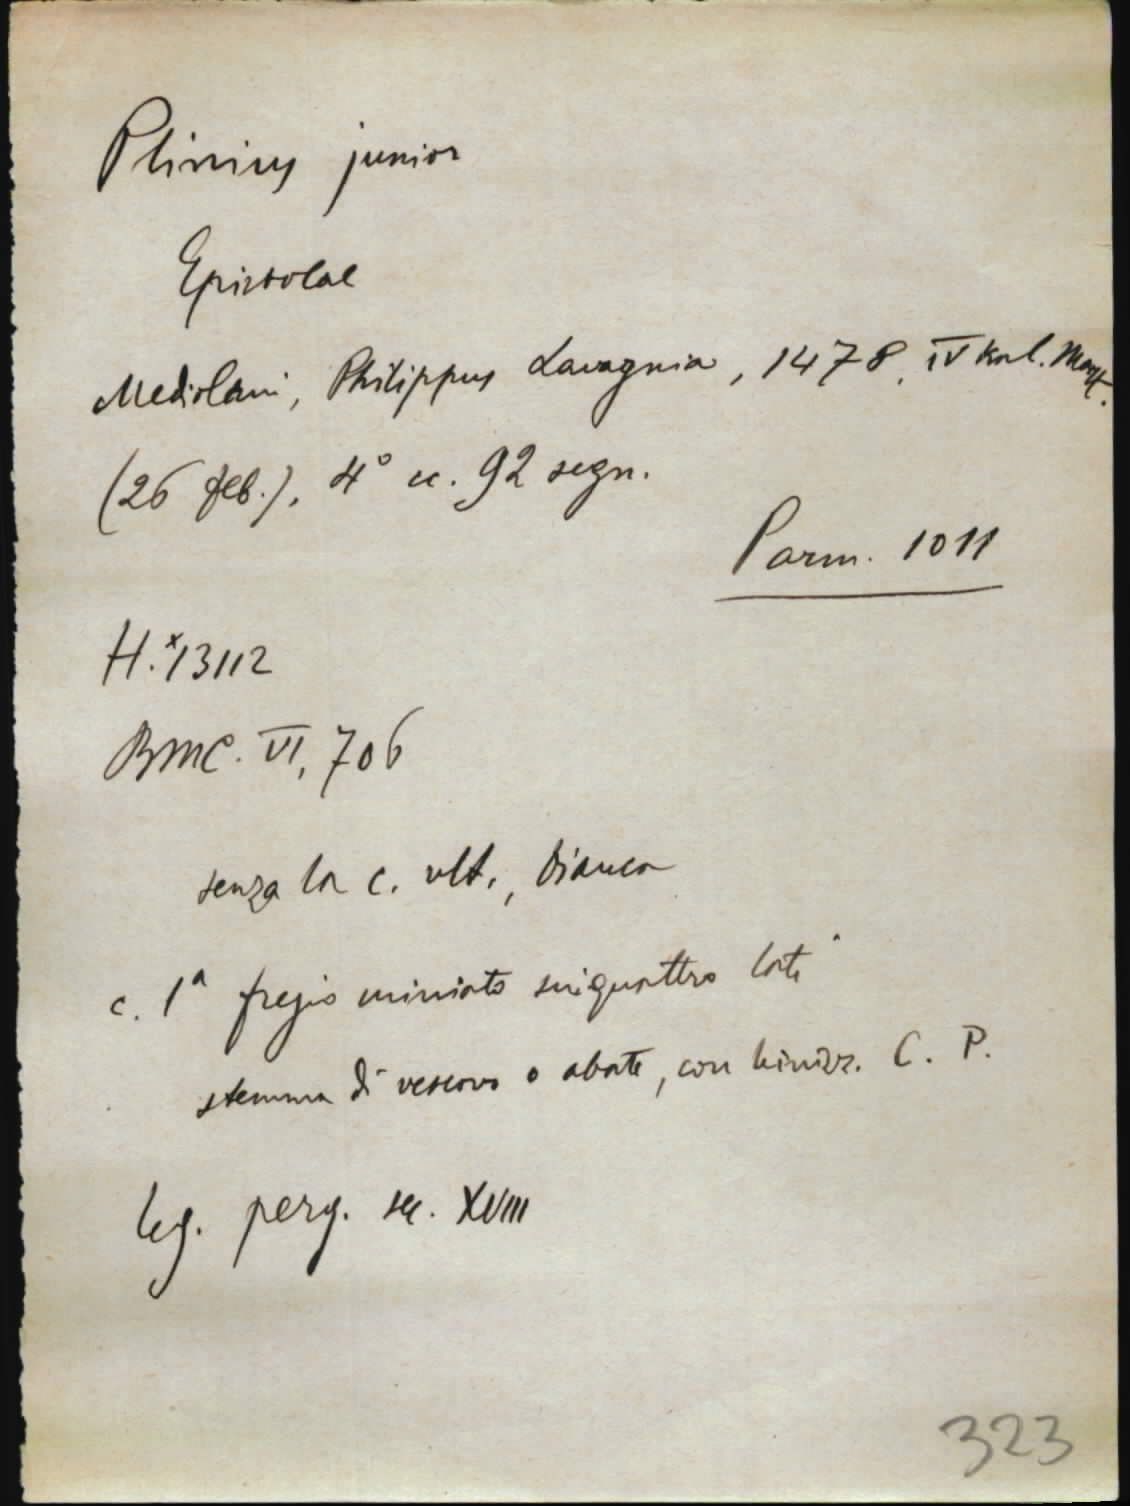 Plinius junior
Epistolae
Mediolani, Philippus Lavagnia, 1478, IV Kal. Mart.
(26 feb.), 4° cc. 92 segn.
Parm. 1011
H.*13112
BMC. VI, 706
senza la c. ult., bianca
c. 1ª fregio miniato sui quattro lati
stemma di vescovo o abate, con iniziz. C. P.
leg. perg. sec. XVIII
323